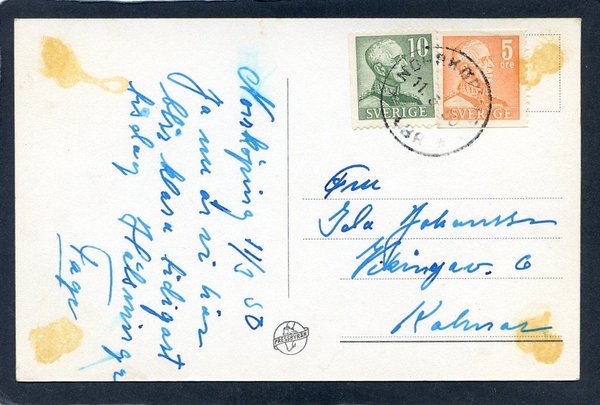 Norrköping 11/3 50
Ja nu är vi här
blir klara tidigast
tisdag Hälsningar
Tage
10
SVERIGE
5
öre
SVERIGE
11.3
PRESSBYRÅN
Fru
Ida Johansson
Vikingav. 6
Kalmar